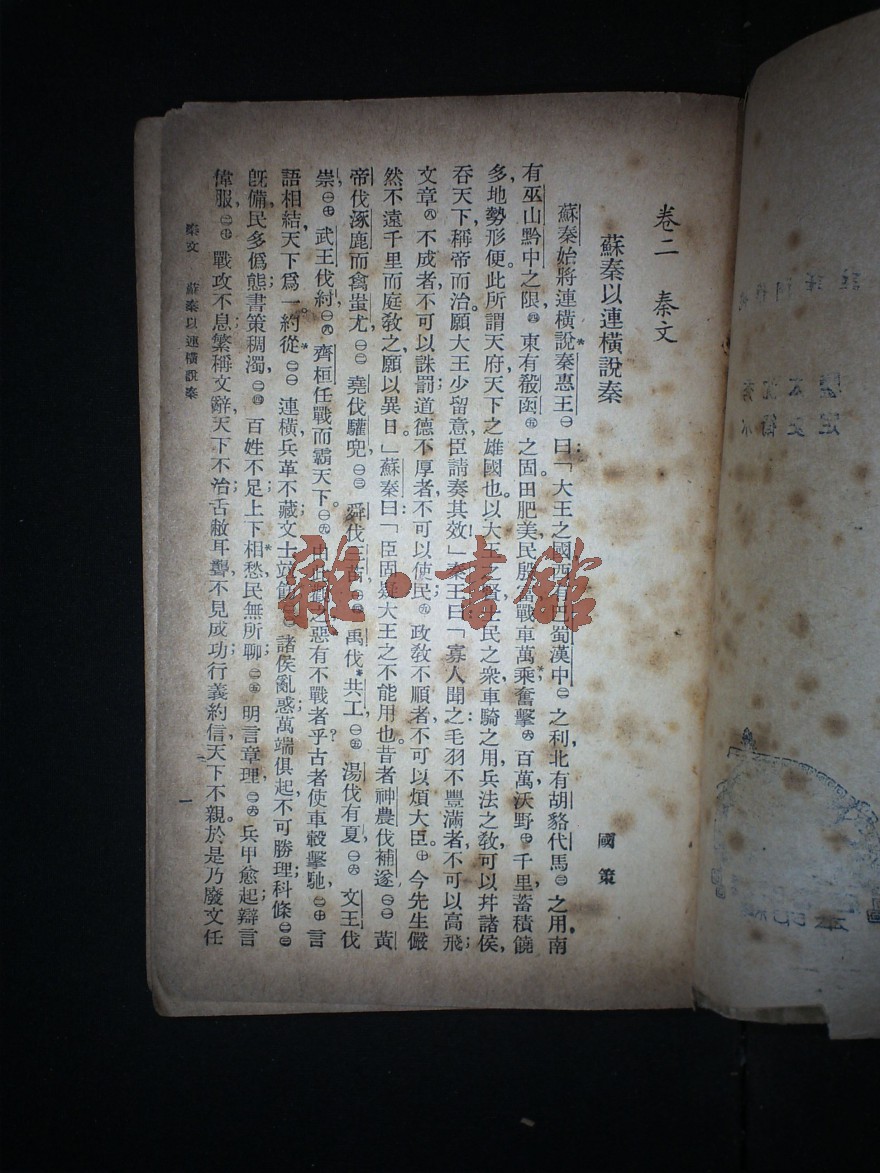 卷二　秦文
蘇秦以連橫說秦
國策
蘇秦始將連橫說秦惠王㊀曰：「大王之國西有巴蜀漢中㊁之利，北有胡貉代馬㊂之用，南
有巫山黔中之限㊃，東有殽函㊄之固。田肥美，民殷富，戰車萬乘，奮擊㊅百萬，沃野㊆千里，蓄積饒
多，地勢形便。此所謂天府，天下之雄國也。以大王之賢，士民之衆，車騎之用，兵法之敎，可以幷諸侯，
吞天下，稱帝而治。願大王少留意，臣請奏其效！」秦王曰：「寡人聞之：毛羽不豐滿者，不可以高飛；
文章㊇不成者，不可以誅罰；道德不厚者，不可以使民㊈；政敎不順者，不可以煩大臣。㊉今先生儼
然不遠千里而庭敎之，願以異日。」蘇秦曰：「臣固疑大王之不能用也。昔者神農伐補遂㊀㊀，黃
帝伐涿鹿而禽蚩尤㊀㊁，堯伐驩兜㊀㊂，舜伐三苗㊀㊃，禹伐共工㊀㊄，湯伐有夏㊀㊅，文王伐
崇㊀㊆，武王伐紂㊀㊇，齊桓任戰而霸天下。㊀㊈由此觀之，惡有不戰者乎？古者使車轂擊馳㊁㊉，言
語相結，天下爲一；約從㊁㊀連橫，兵革不藏；文士竝飭㊁㊁，諸侯亂惑；萬端俱起，不可勝理；科條㊁㊂
旣備，民多僞態；書策稠濁㊁㊃，百姓不足；上下相愁，民無所聊㊁㊄；明言章理㊁㊅，兵甲愈起；辯言
偉服㊁㊆，戰攻不息；繁稱文辭，天下不治；舌敝耳聾，不見成功；行義約信，天下不親。於是乃廢文任
秦文　蘇秦以連橫說秦
一
雜·書館